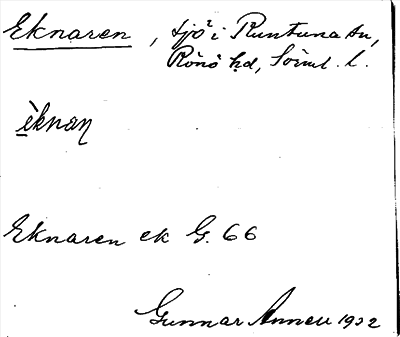 Eknaren, sjö i Runtuna sn,
Rönö hd, Söml. l.
èknaṇ
Eknaren ek G. 66
Gunnar Annell 1932